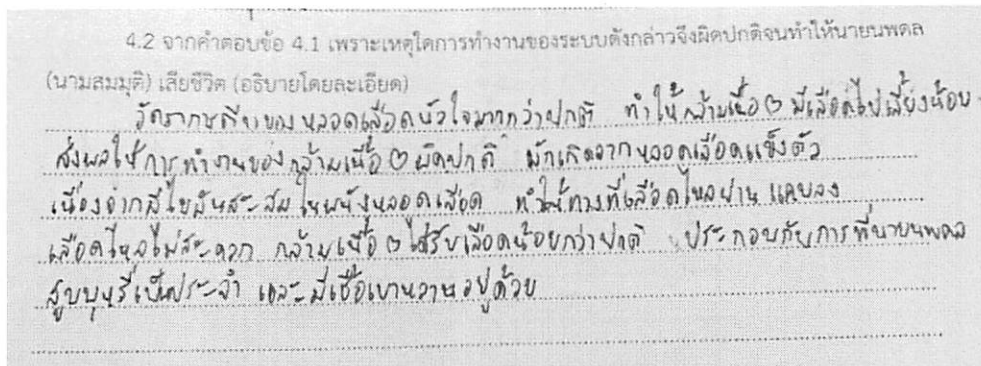 4.2 จากคำตอบข้อ 4.1 เพราะเหตุใดการทำงานของระบบดังกล่าวจึงผิดปกติจนทำให้นายนพดล
(นามสมมุติ) เสียชีวิต (อธิบายโดยละเอียด)
อัตราการตีบของหลอดเลือดหัวใจมากกว่าปกติ ทำให้กล้ามเนื้อ ♡ มีเลือดไปเลี้ยงน้อย
ส่งผลให้การทำงานของกล้ามเนื้อ ♡ ผิดปกติ มักเกิดจากหลอดเลือดแข็งตัว
เนื่องจากมีไขมันสะสมในผนังหลอดเลือด ทำให้ทางที่เลือดไหลผ่าน แคบลง
เลือดไหลไม่สะดวก กล้ามเนื้อ ♡ ได้รับเลือดน้อยกว่าปกติ ประกอบกับการที่นายนพดล
สูบบุหรี่เป็นประจำ และมีเชื้อเบาหวานอยู่ด้วย